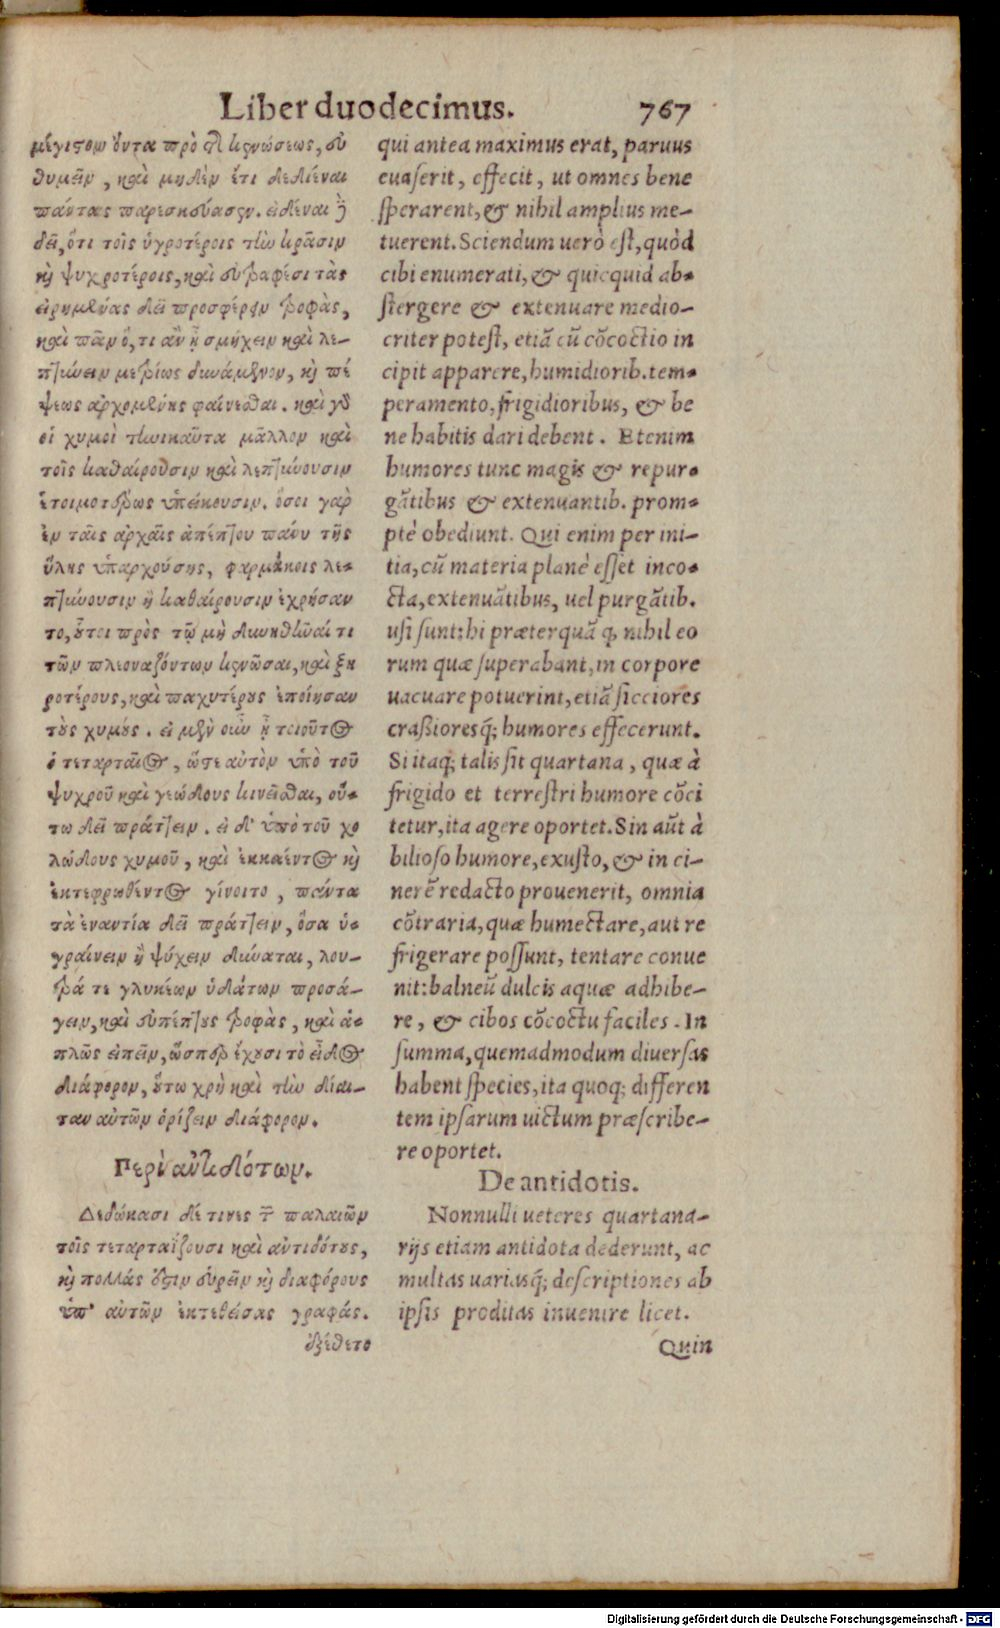 Liber duodecimus. 767
μέγιστον ὄντα πρὸ τ͂ κενώσεως, εὐ
θυμεῖν, καὶ μηδὲν ἔτι δεδιέναι
πάντας παρεσκεύασεν. εἰδέναι δὲ
δεῖ, ὅτι τοῖς ὑγροτέροις τὴν κρᾶσιν
καὶ ψυχροτέροις, καὶ εὐτραφέσι τὰς
εἰρημένας δεῖ προσφέρειν τροφὰς,
καὶ πᾶν ὅ, τι ἂν ᾖ σμήχειν καὶ λε-
πτύνειν μετρίως δυνάμενον, καὶ πέ
ψεως ἀρχομένης φαίνεσθαι. καὶ γὰρ
οἱ χυμοὶ τηνικαῦτα μᾶλλον καὶ
τοῖς καθαίρουσιν καὶ λεπτύνουσιν
ἑτοιμοτέρως ὑπείκουσιν. ὅσοι γαρ
ἐν ταῖς ἀρχαῖς ἀπέπτου πάνυ τῆς
ὕλης ὑπαρχούσης, φαρμάκοις λε-
πτύνουσιν ἢ καθαίρουσιν ἐχρήσαν
το, οὗτοι πρὸς τῷ μὴ δυνηθῆναί τι
τῶν πλεοναζόντων κενῶσαι, καὶ ξη
ροτέρους, καὶ παχυτέρους ἐποίησαν
τοὺς χυμούς. εἰ μὲν οὖν ᾖ τοιοῦτος
ὁ τεταρταῖος, ὥστε αὐτὸν ὑπὸ τοῦ
ψυχροῦ καὶ γεώδους κινεῖσθαι, οὕ-
τω δεῖ πράττειν. εἰ δ' ὑπὸ τοῦ χο
λώδους χυμοῦ, καὶ ἐκκαέντος καὶ
ἐκτεφρωθέντος γίνοιτο, πάντα
τὰ ἐναντία δεῖ πράττειν, ὅσα ὑ-
γραίνειν ἢ ψύχειν δύναται, λου-
τρά τε γλυκέων ὑδάτων προσά-
γειν, καὶ εὐπέπτους τροφὰς, καὶ ἁ-
πλῶς εἰπεῖν, ὥσπερ ἔχουσι τὸ εἶδος
διάφορον, οὕτω χρὴ καὶ τὴν δίαι-
ταν αὐτῶν ὁρίζειν διάφορον.
Περὶ ἀντιδότων.
Δεδώκασι δέ τινες τῶν παλαιῶν
τοῖς τεταρταΐζουσι καὶ ἀντιδότους,
καὶ πολλάς ἐστιν εὑρεῖν καὶ διαφόρους
ὑπ' αὐτῶν ἐκτεθείσας γραφάς.
ἐξέθετο
qui antea maximus erat, paruus
euaserit, effecit, ut omnes bene
sperarent, & nihil amplius me-
tuerent. Sciendum uerò est, quòd
cibi enumerati, & quicquid ab-
stergere & extenuare medio-
criter potest, etiã cũ cõcoctio in
cipit apparere, humidiorib. tem-
peramento, frigidioribus, & be
ne habitis dari debent. Etenim
humores tunc magis & repur-
gãtibus & extenuantib. prom-
ptè obediunt. Qui enim per ini-
tia, cũ materia planè esset inco-
cta, extenuãtibus, uel purgãtib.
usi sunt: hi præterquã q̃ nihil eo
rum quæ superabant, in corpore
uacuare potuerint, etiã sicciores
crassioresq́; humores effecerunt.
Si itaq; talis sit quartana, quæ à
frigido et terrestri humore cõci
tetur, ita agere oportet. Sin aũt à
bilioso humore, exusto, & in ci-
nerẽ redacto prouenerit, omnia
cõtraria, quæ humectare, aut re
frigerare possunt, tentare conue
nit: balneũ dulcis aquæ adhibe-
re, & cibos cõcoctu faciles. In
summa, quemadmodum diuersas
habent species, ita quoq; differen
tem ipsarum uictum præscribe-
re oportet.
De antidotis.
Nonnulli ueteres quartana-
rijs etiam antidota dederunt, ac
multas uariasq́; descriptiones ab
ipsis proditas inuenire licet.
Quin
Digitalisierung gefördert durch die Deutsche Forschungsgemeinschaft - DFG